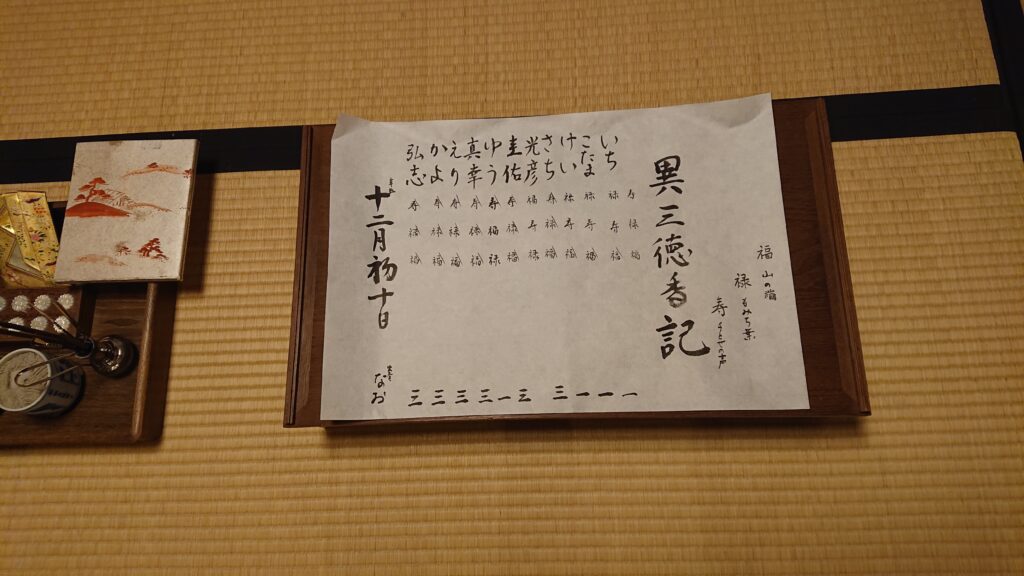 福 山の端
禄 もみち葉
寿
異三徳香記
寿 禄 福
いち 禄 寿 福 一
こたま 禄 寿 福 一
けい 禄 寿 福 一
さち 寿 禄 福 三
光彦 福 寿 禄
圭佑 寿 禄 福 三
ゆう 寿 福 禄 一
真幸 寿 禄 福 三
えり 寿 禄 福 三
かよ 寿 禄 福 三
弘志 寿 禄 福 三
十二月初十日 なお